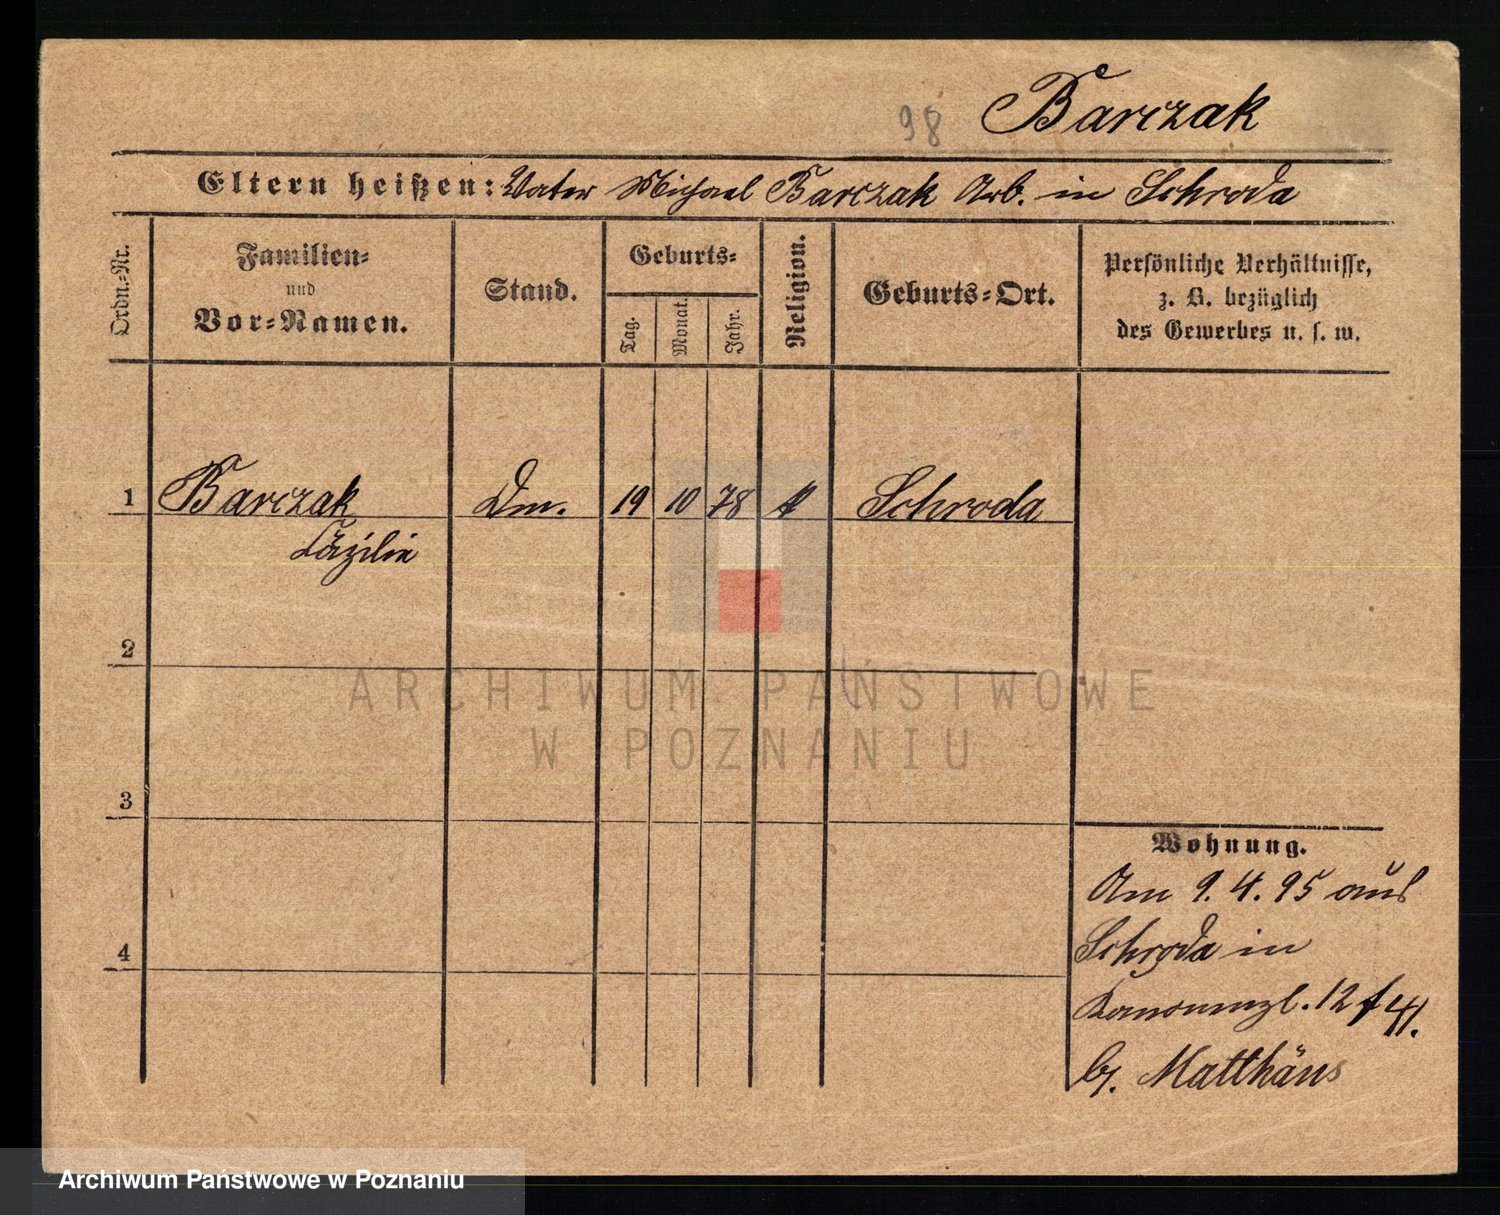 98 Barczak
Eltern heißen: Vater Michael Barczak Arb. in Schroda
Ordn.-Nr.
Familien-
und
Vor-Namen.
Stand.
Geburts-
Tag.
Monat.
Jahr.
Religion.
Geburts-Ort.
Persönliche Verhältnisse,
z. B. bezüglich
des Gewerbes u. s. w.
1 Barczak Dm. 19 10 78 Schroda
Cäzilie
2
ARCHIWUM PAŃSTWOWE
W POZNANIU
3
Wohnung.
Am 9. 4. 95 aus
4
Schroda in
12
b. Matthäus
Archiwum Państwowe w Poznaniu